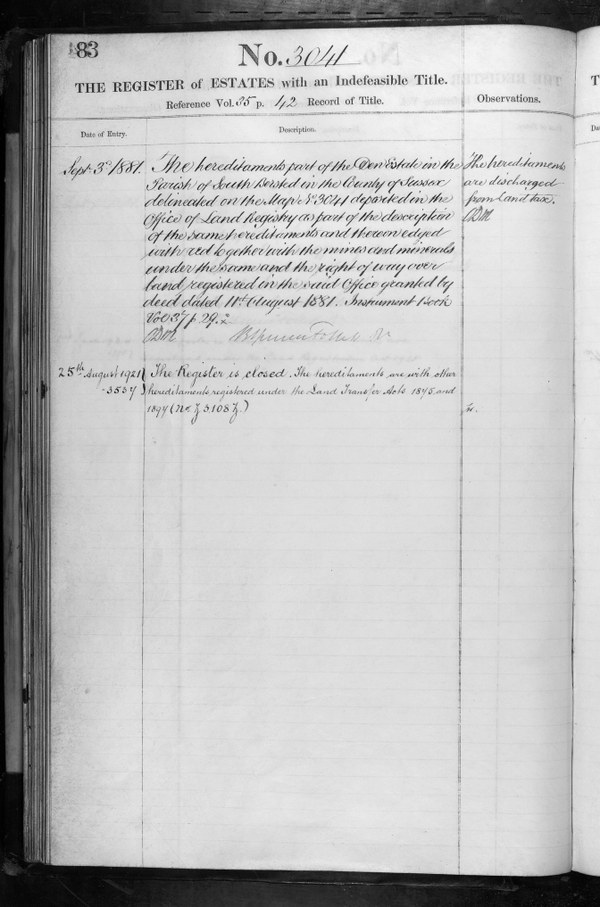 83
No. 3041
THE REGISTER of ESTATES with an Indefeasible Title.
Reference Vol. 35 p. 42 Record of Title.
Observations.
Date of Entry.
Description.
Sept. 3rd 1881.
The hereditaments part of the Den Estate in the
Parish of South Bersted in the County of Sussex
delineated on the Map No. 3041 deposited in the
Office of Land Registry as part of the description
of the same hereditaments and thereon edged
with red together with the mines and minerals
under the same and the right of way over
land registered in the said Office granted by
deed dated 11th August 1881. Instrument Book
Vol 37 p. 29.
The hereditaments
are discharged
from Land tax.
25th August 1921
3537
The Register is closed. The hereditaments are with other
hereditaments registered under the Land Transfer Acts 1875 and
1897 (No Z 3108 Z.)